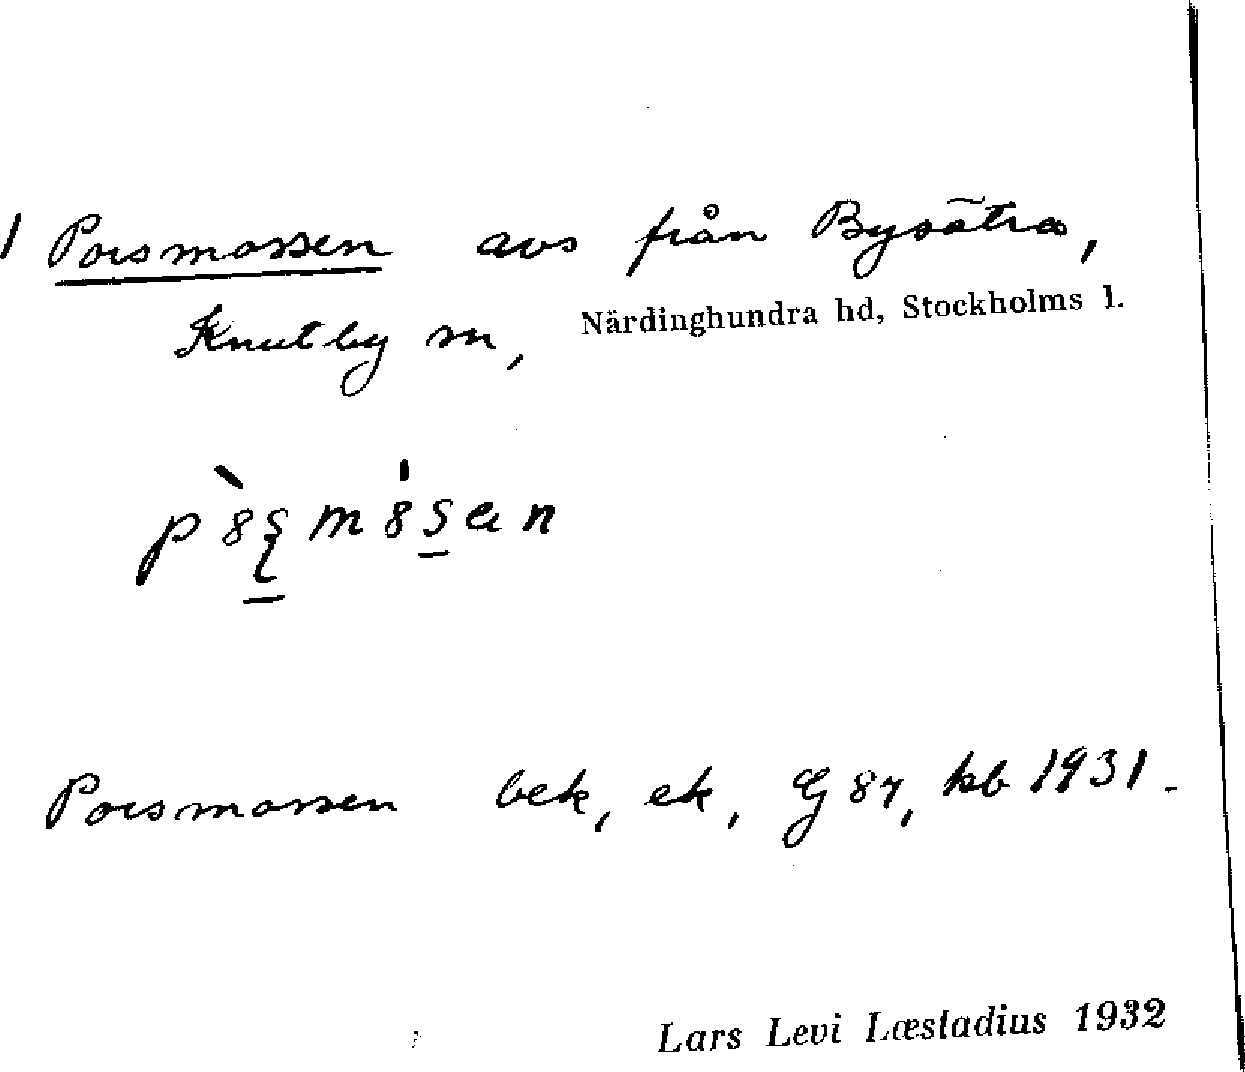 1 Porsmossen avs från Bysätra,
Knutby sn, Närdinghundra hd, Stockholms l.
Porsmossen bek, ek, G 87, kb 1931.
Lars Levi Læstadius 1932